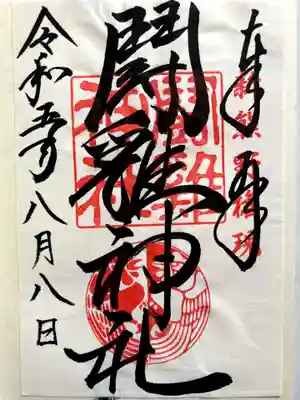 奉拝
新熊野権現
鬪雞神社
鬪雞神社
令和五年八月八日